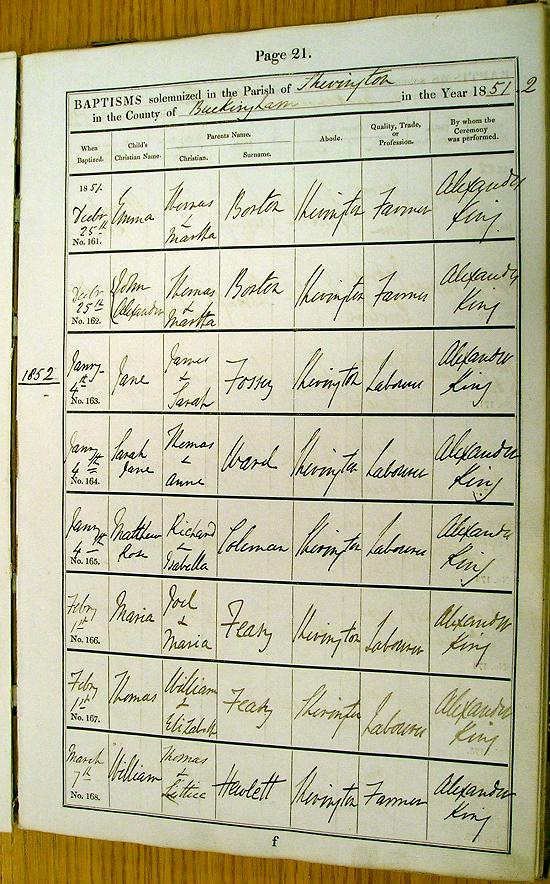 Page 21.
BAPTISMS solemnized in the Parish of Shevington
in the County of Buckingham in the Year 1851-2
When Baptized. Child's Christian Name. Parents Name. Christian. Surname. Abode. Quality, Trade, or Profession. By whom the Ceremony was performed.
1851. Decbr 25th No. 161. Emma Thomas & Martha Borton Shevington Farmer Alexander King
Decbr 25th No. 162. John Alexander Thomas & Martha Borton Shevington Farmer Alexander King
1852
Janry 4th No. 163. Jane James & Sarah Fossey Shevington Labourer Alexander King
Janry 4th No. 164. Sarah Jane Thomas & Anne Ward Shevington Labourer Alexander King
Janry 4th No. 165. Matthew Rose Richard & Isabella Coleman Shevington Labourer Alexander King
Febry 1st No. 166. Maria Joel & Maria Feary Shevington Labourer Alexander King
Febry 1st No. 167. Thomas William & Elizabeth Feary Shevington Labourer Alexander King
March 7th No. 168. William Thomas & Lettice Hewlett Shevington Farmer Alexander King
f